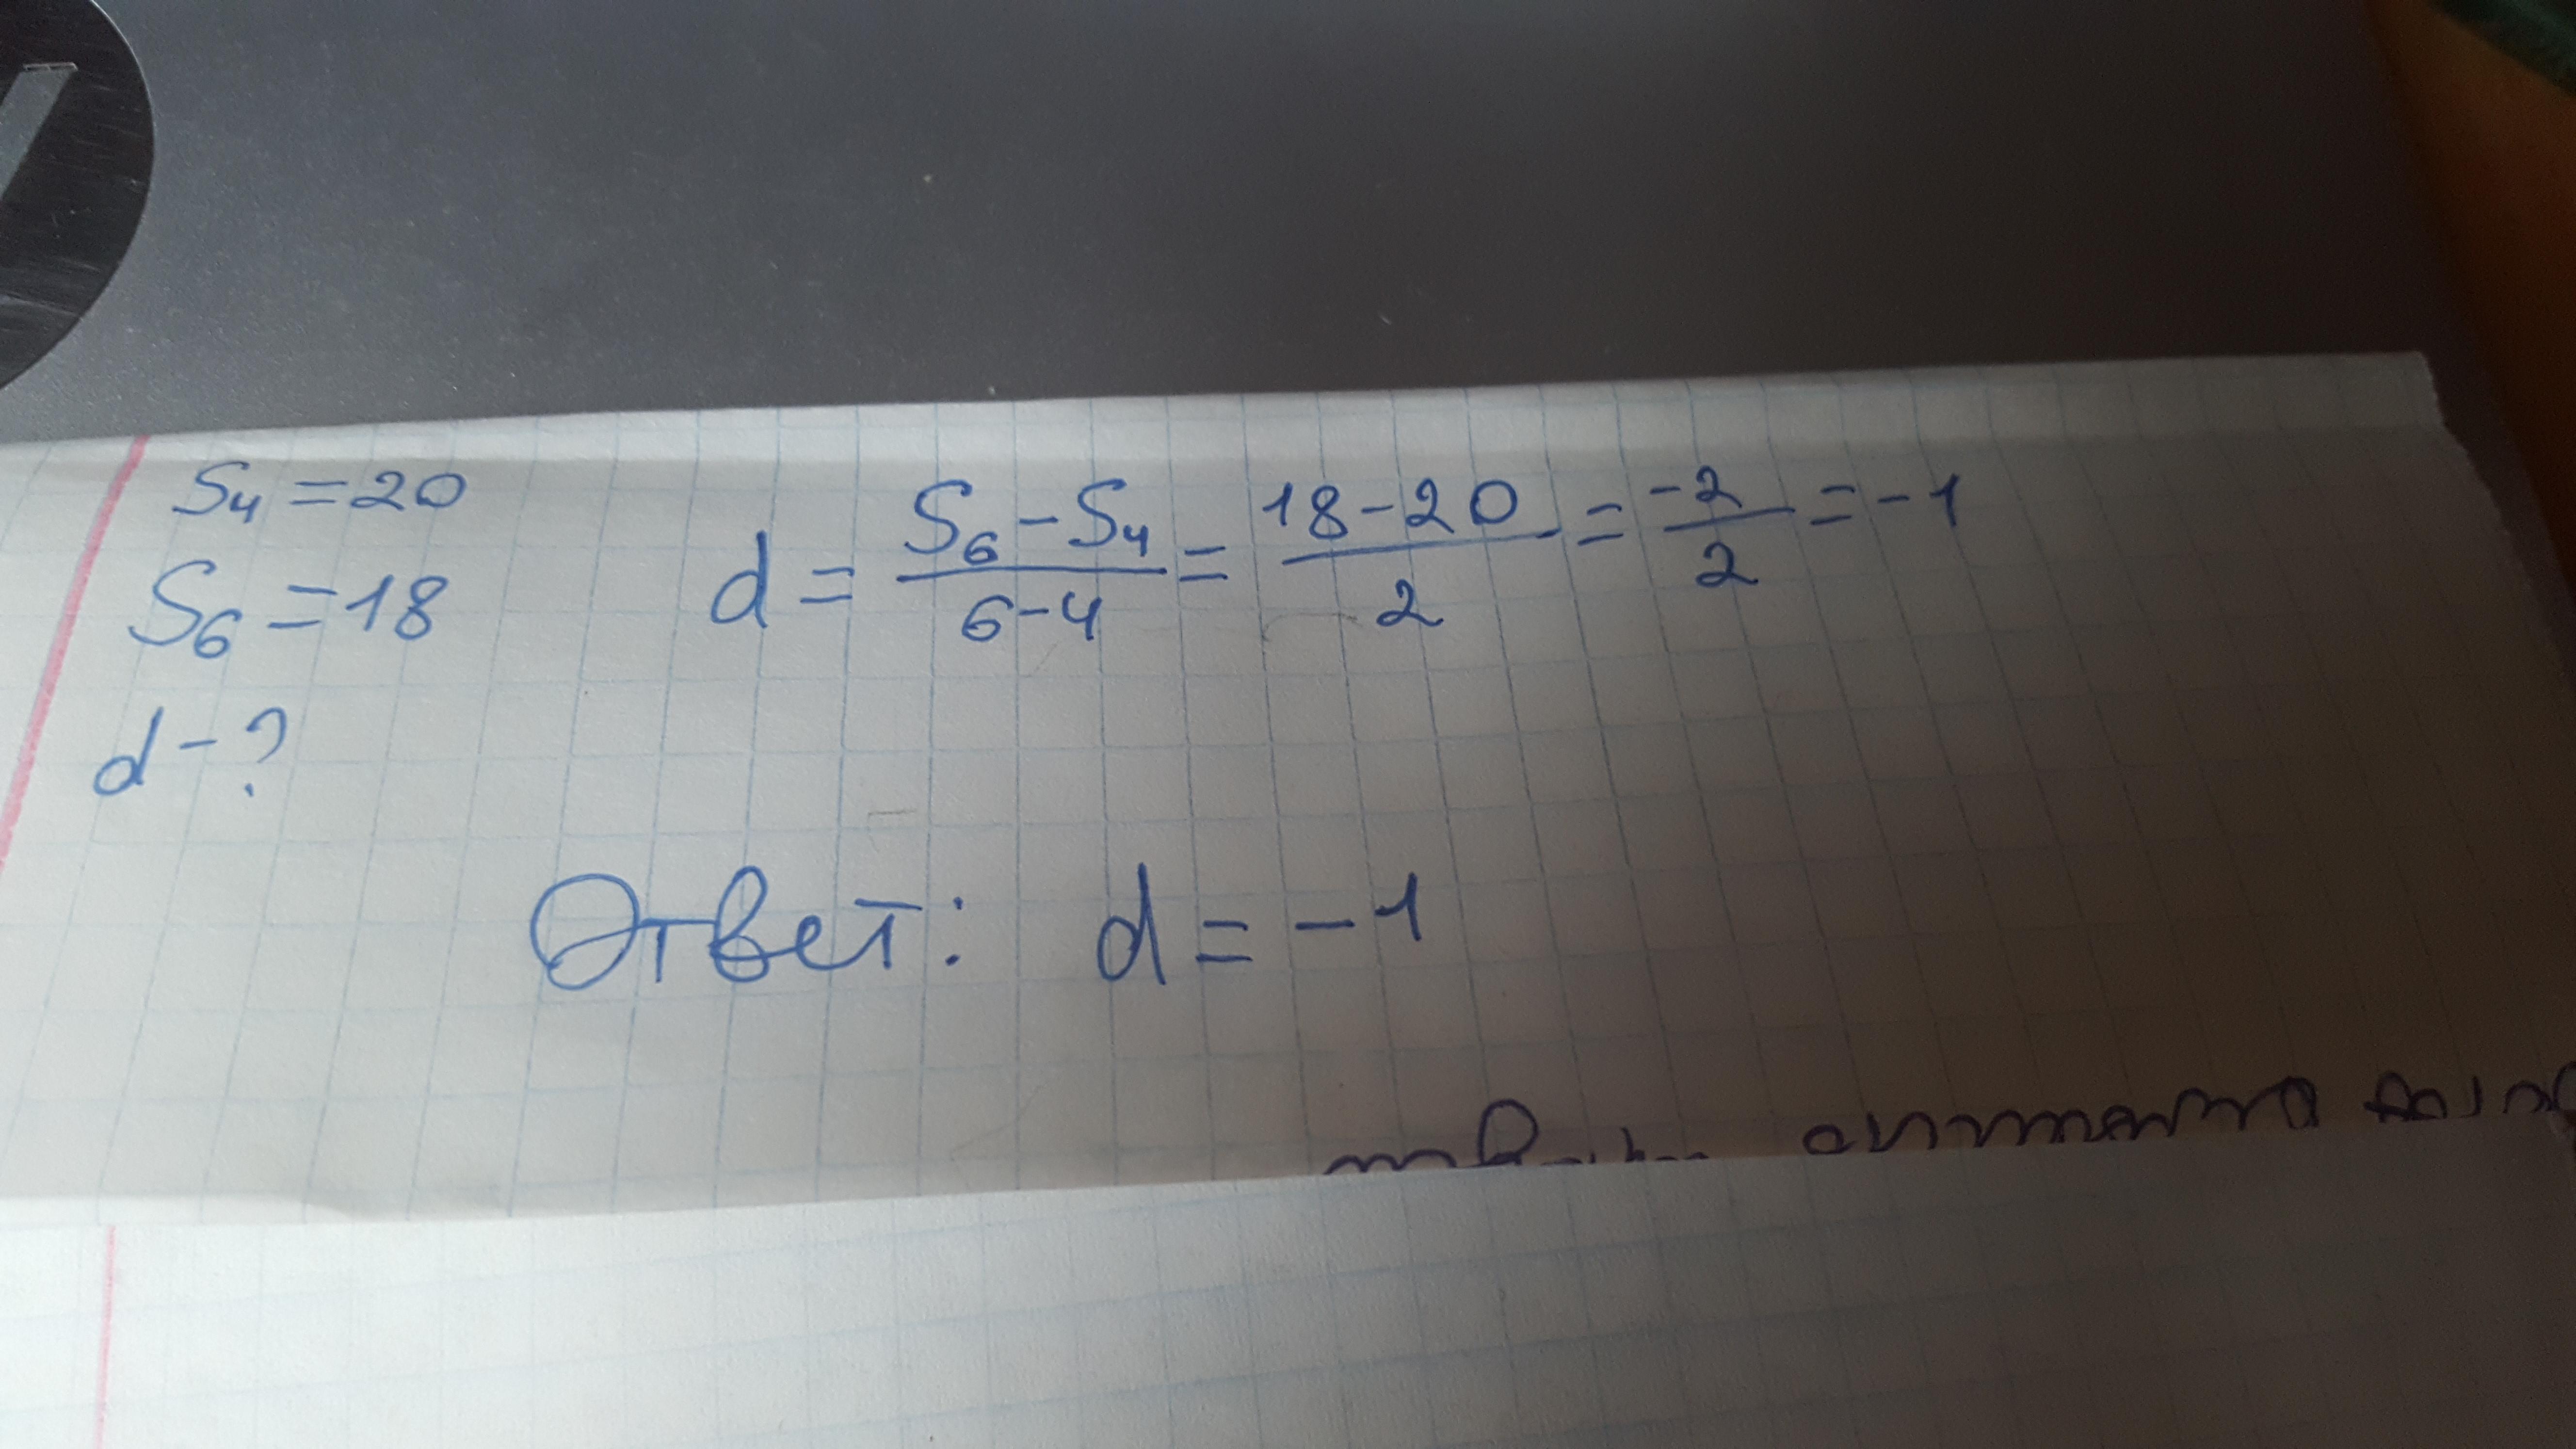 S₄ = 20
S₆ = 18
d - ?
d = (S₆ - S₄)/(6 - 4) = (18 - 20)/2 = -2/2 = -1
Ответ: d = -1